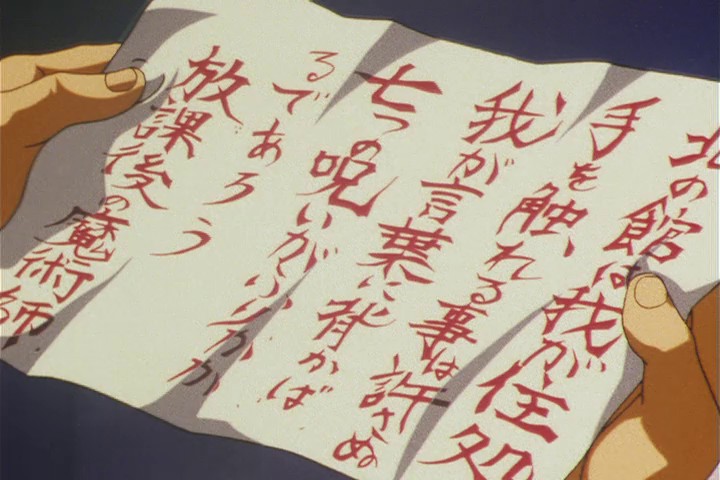 北の館は我が住処
手を触れる事は許さぬ
我が言葉に背かば
七つの呪いがふりかか
るであろう
放課後の魔術師